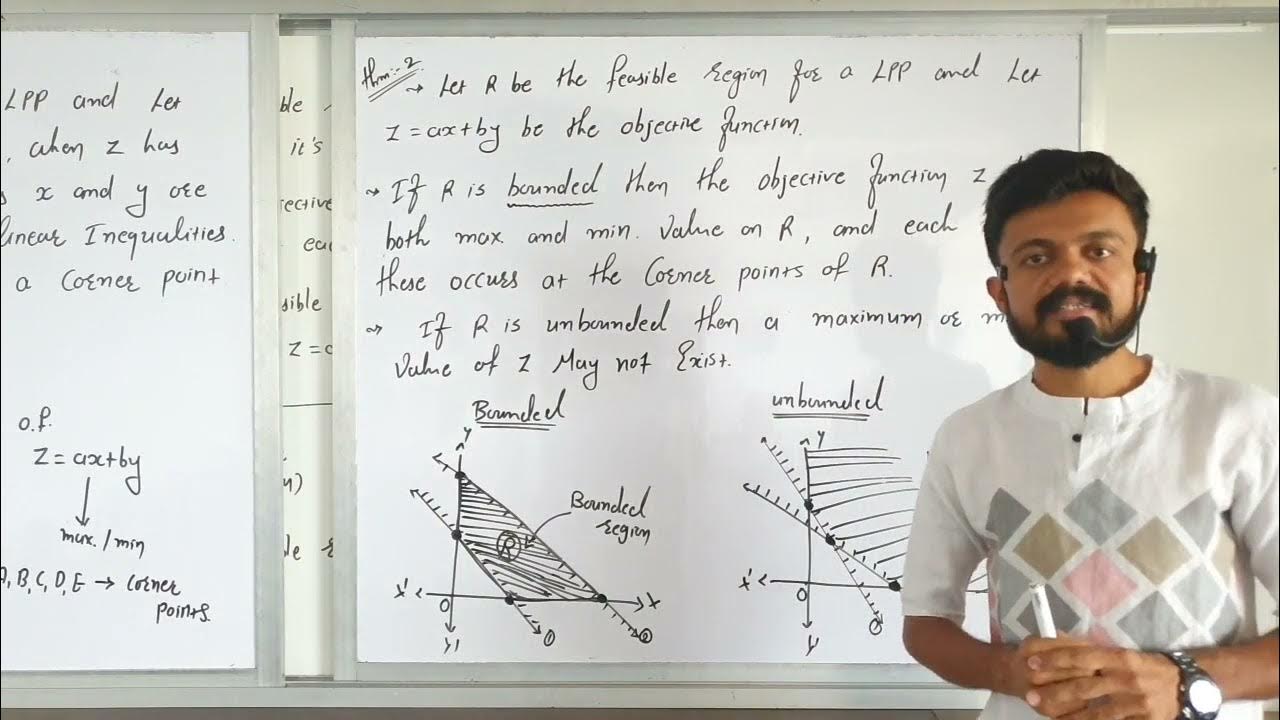 LPP and Let
, when Z has
x and y are
linear Inequalities.
a Corner point
o.f.
Z = ax+by
max. / min
B, C, D, E → Corner
points.
ble
it's
ective
eac
sible
Z = a
thm:-2
→ Let R be the feasible region for a LPP and Let
Z = ax+by be the objective function.
→ If R is bounded then the objective function Z
both max. and min. Value on R, and each
these occurs at the Corner points of R.
→ If R is unbounded then a maximum or m
Value of Z May not Exist.
Bounded
Y
Bounded
region
R
X'
O
X
Y'
①
②
unbounded
Y
X'
O
Y
①